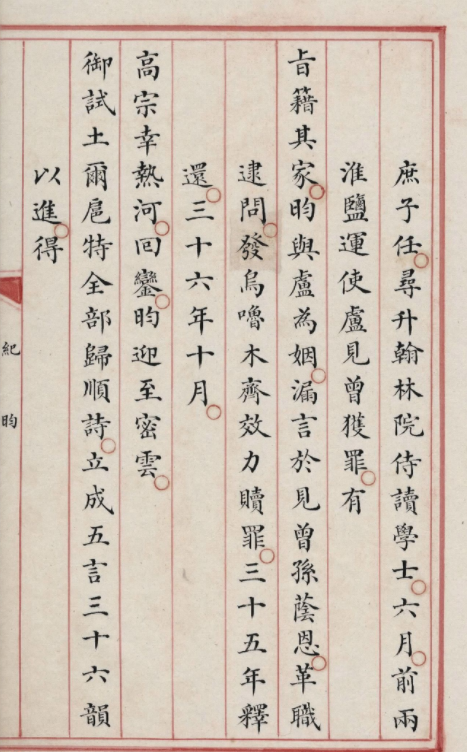 庶子任尋升翰林院侍讀學士六月前兩
淮鹽運使盧見曾獲罪有
旨籍其家昀與盧為姻漏言於見曾孫蔭恩革職
逮問發烏嚕木齊效力贖罪三十五年釋
還三十六年十月
高宗幸熱河回鑾昀迎至密雲
御試土爾扈特全部歸順詩立成五言三十六韻
以進得
紀昀